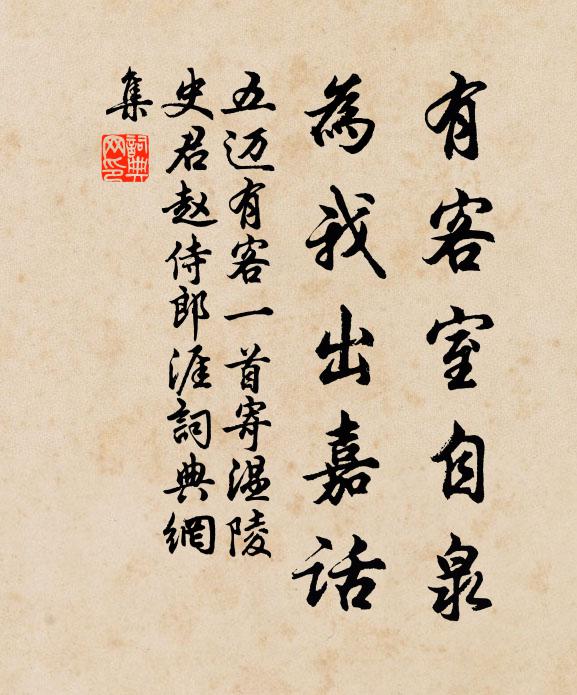 有客室自泉
為我出嘉话
五迈有客一首寄温陵
史君赵侍郎涯詞典網
集
詞典網印